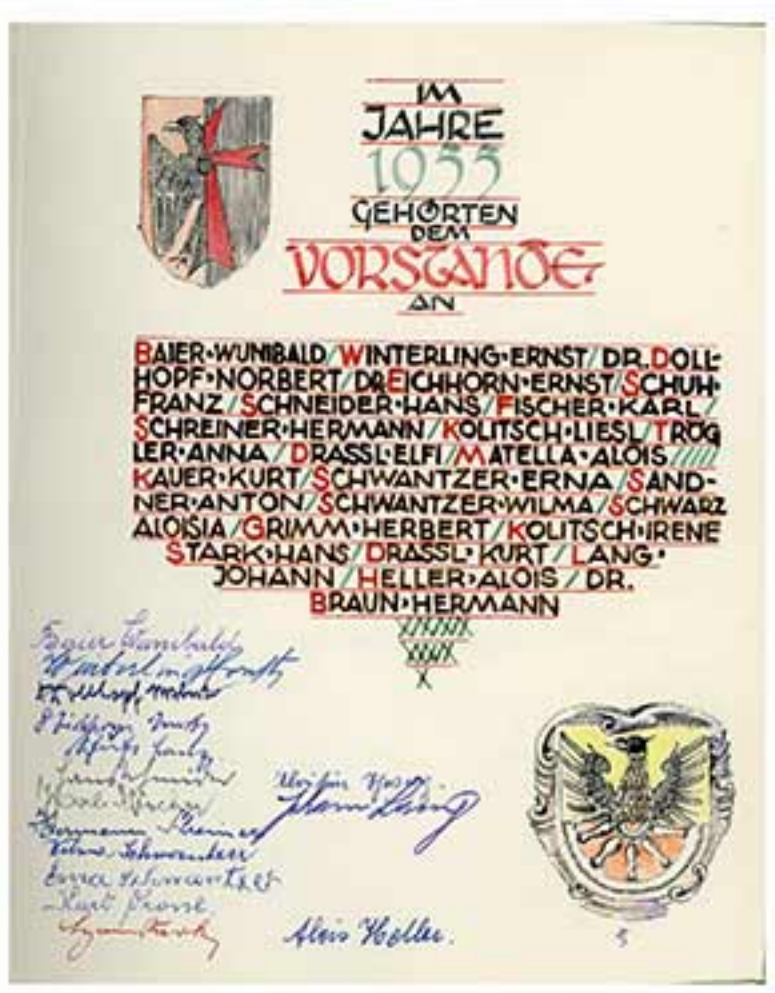 IM
JAHRE
1955
GEHÖRTEN
DEM
VORSTANDE
AN
BAIER·WUNIBALD/WINTERLING·ERNST/DR.DOLL-
HOPF·NORBERT/DR.EICHHORN·ERNST/SCHUH·
FRANZ/SCHNEIDER·HANS/FISCHER·KARL/
SCHREINER·HERMANN/KOLITSCH·LIESL/TRÖG
LER·ANNA/DRASSL·ELFI/MATELLA·ALOIS/////
KAUER·KURT/SCHWANTZER·ERNA/SAND-
NER·ANTON/SCHWANTZER·WILMA/SCHWARZ
ALOISIA/GRIMM·HERBERT/KOLITSCH·IRENE
STARK·HANS/DRASSL·KURT/LANG·
JOHANN/HELLER·ALOIS/DR.
BRAUN·HERMANN
Baier Wunibald
Winterling Ernst
Hans Schneider
Hermann Schreiner
Erna Schwantzer
Johann Lang
Alois Heller.